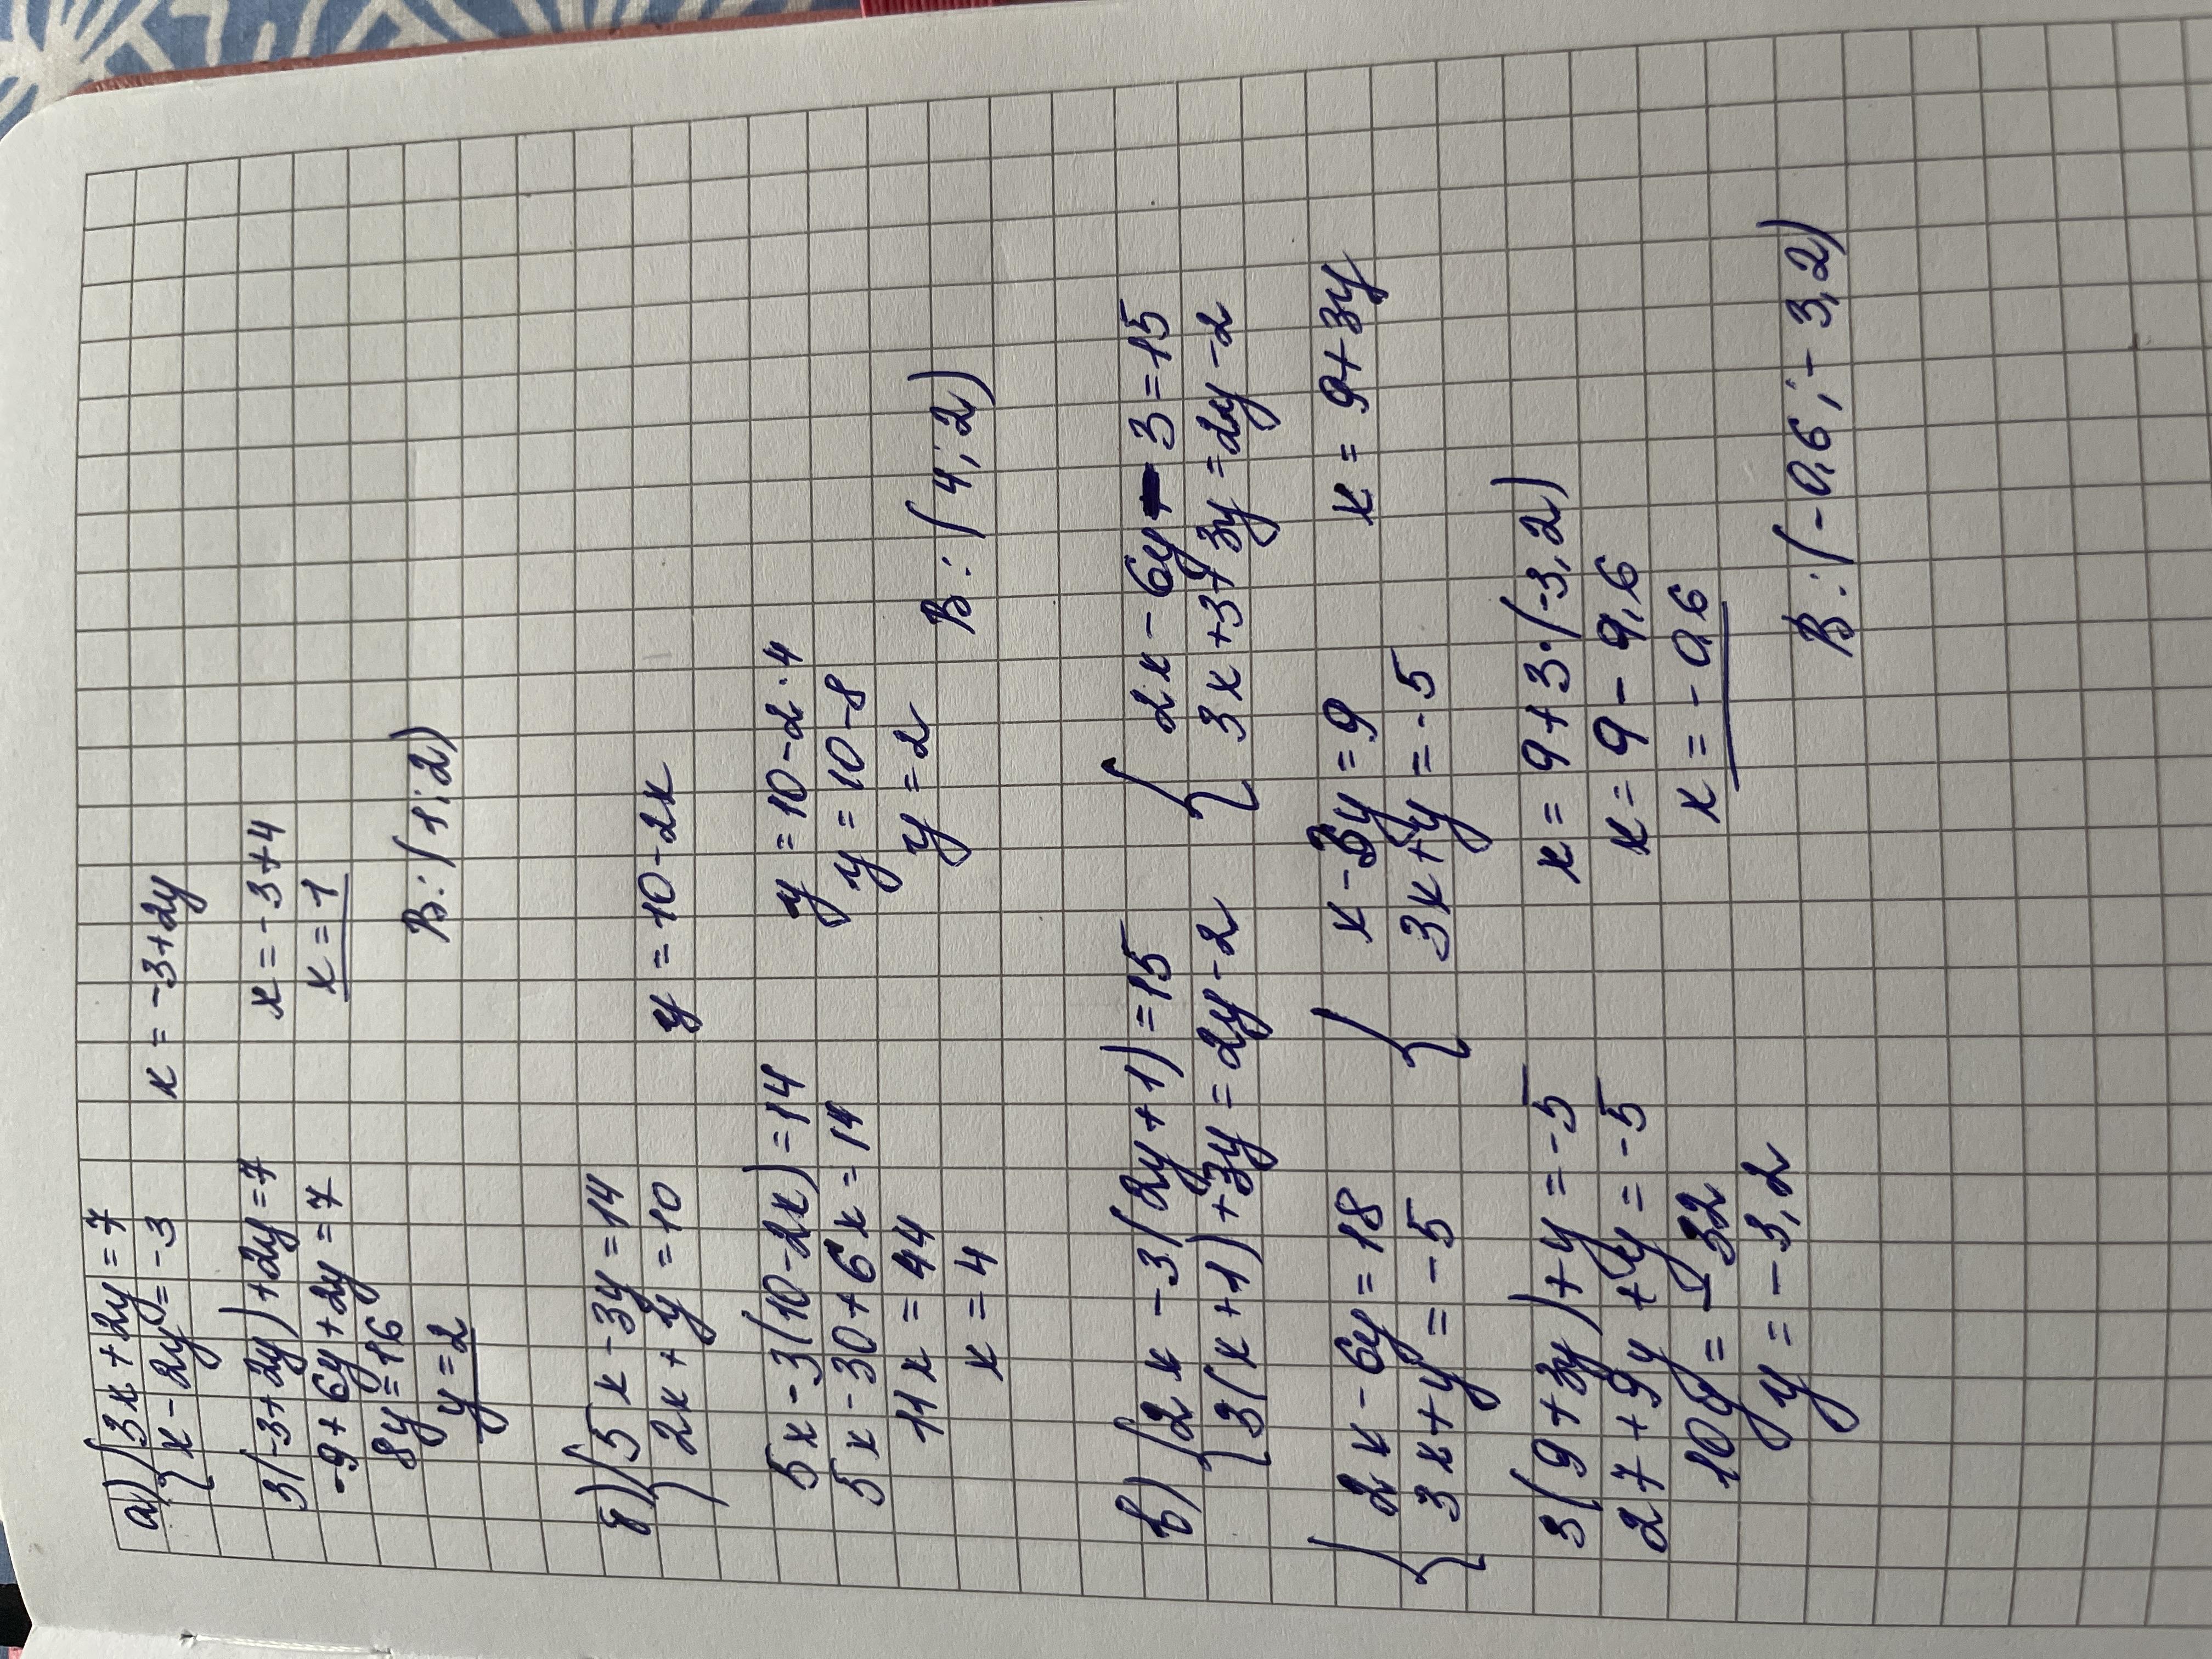 а) { 3x + 2y = 7
x - 2y = -3    x = -3+2y
3(-3+2y)+2y=7    x = -3+4
-9+6y+2y=7    x=1
8y=16
y=2    В:(1;2)
б) { 5x-3y=14
2x+y=10    y=10-2x
5x-3(10-2x)=14    y=10-2·4
5x-30+6x=14    y=10-8
11x=44    y=2
x=4    В:(4;2)
в) { 2x-3(2y+1)=15    { 2x-6y-3=15
3(x+1)+3y=2y-2    3x+3+3y=2y-2
{ 2x-6y=18    { x-3y=9    x=9+3y
3x+y=-5    3x+y=-5
3(9+3y)+y=-5    x=9+3·(-3,2)
27+9y+y=-5    x=9-9,6
10y=-32    x=-0,6
y=-3,2
В:(-0,6;-3,2)